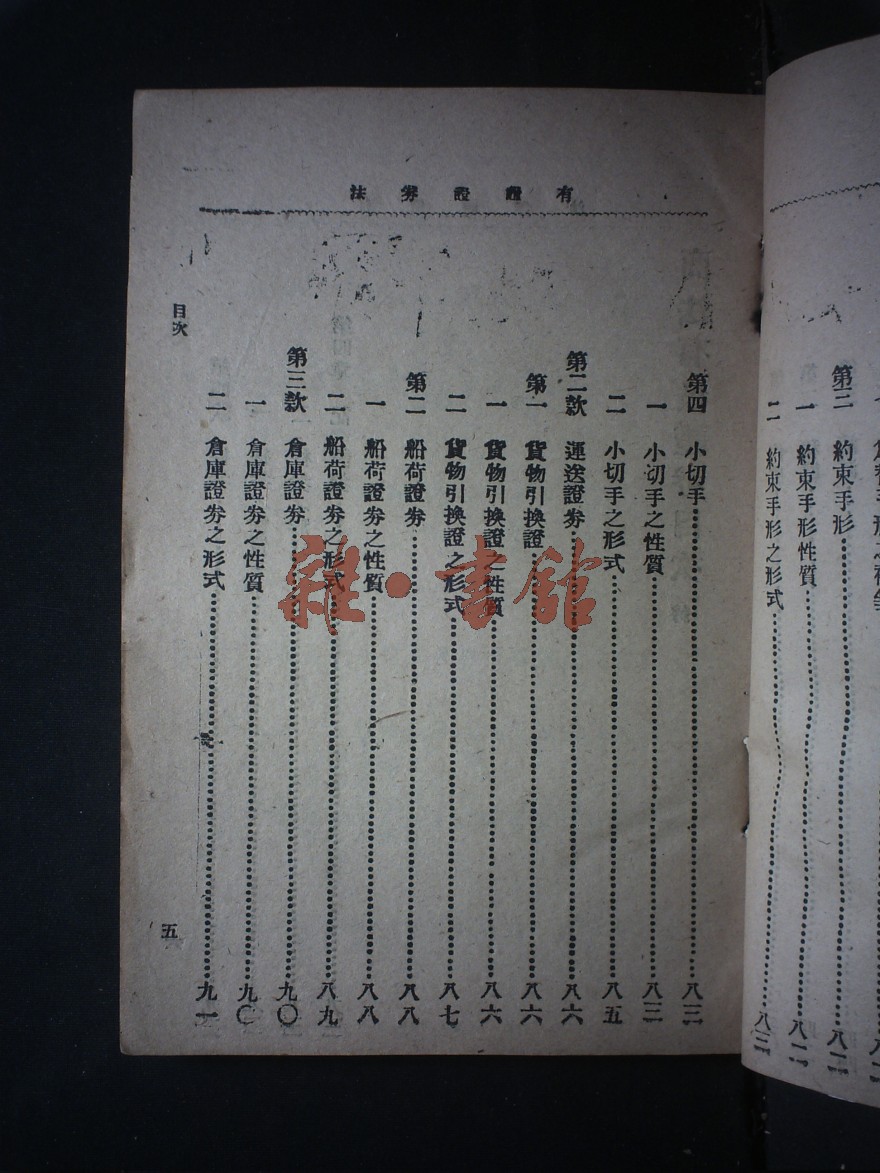 有價證券法
第三 約束手形……八二
一 約束手形性質……八二
二 約束手形之形式……八三
第四 小切手……八三
一 小切手之性質……八三
二 小切手之形式……八五
第二款 運送證券……八六
第一 貨物引換證……八六
一 貨物引換證之性質……八六
二 貨物引換證之形式……八七
第二 船荷證券……八八
一 船荷證券之性質……八八
二 船荷證券之形式……八九
第三款 倉庫證券……九〇
一 倉庫證券之性質……九〇
二 倉庫證券之形式……九一
目次
五
雜·書館